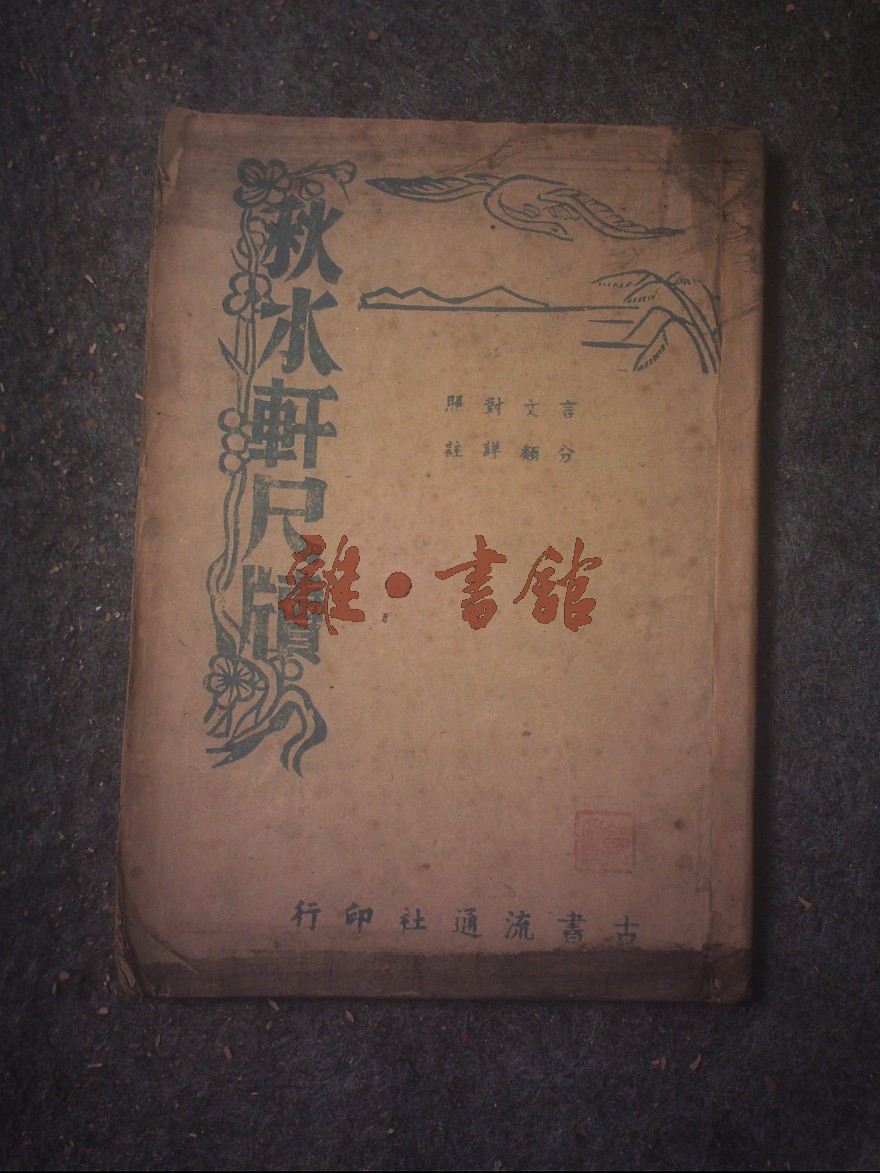 秋水軒尺牘
言文對照
分類詳註
雜·書館
古書流通社印行